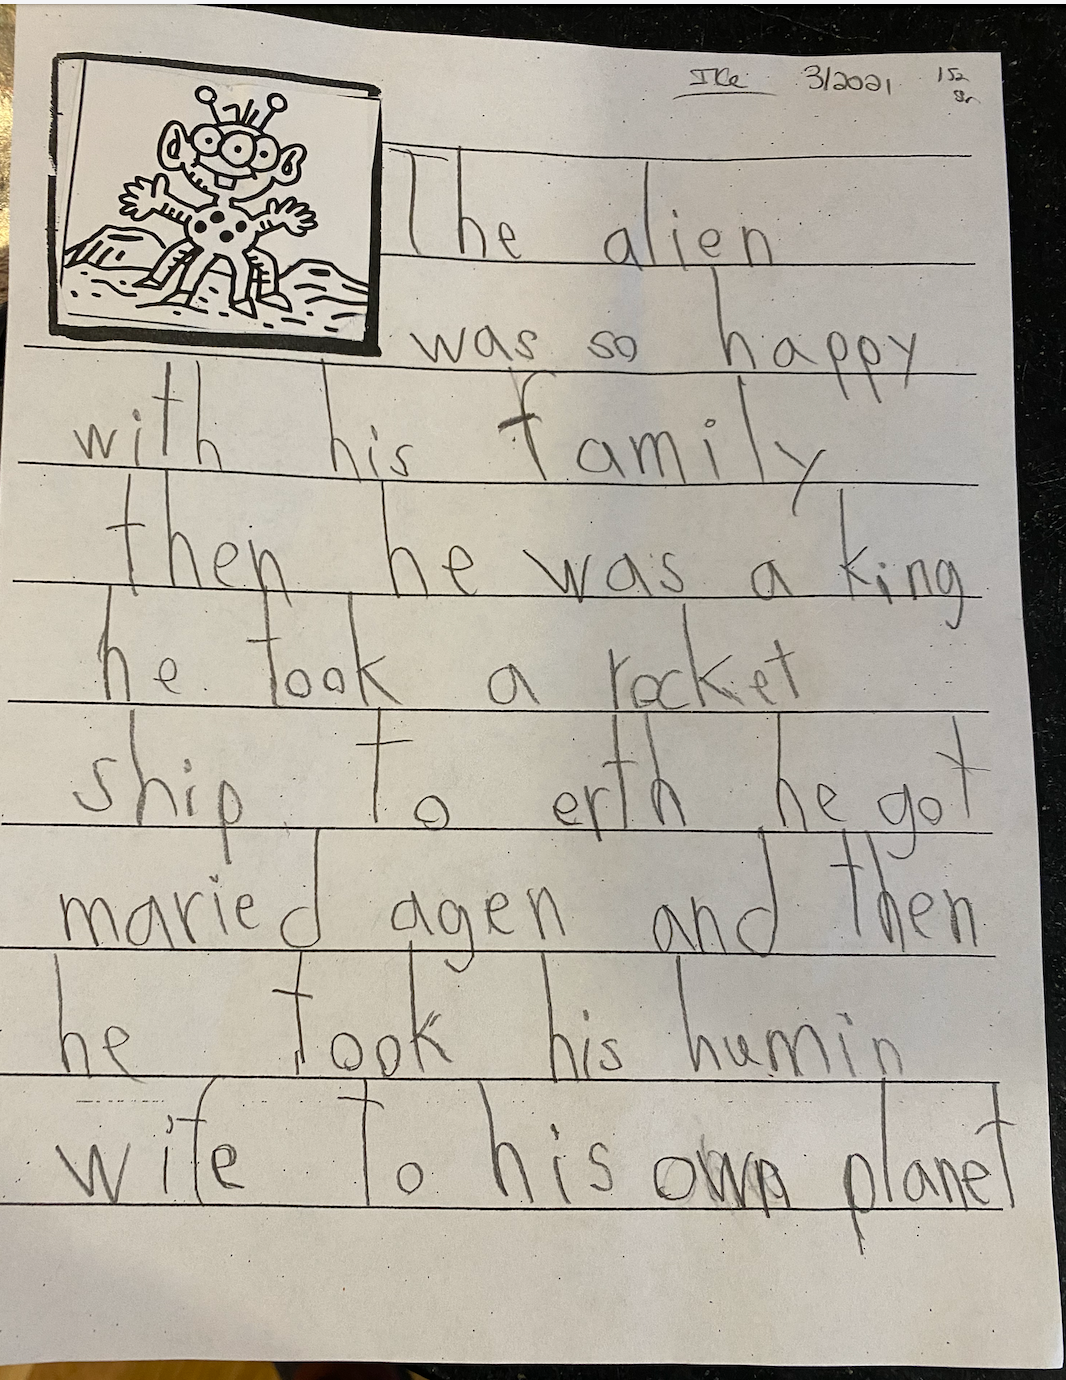 Ike 3/2021
The alien
was so happy
with his family
then he was a king
he took a rocket
ship to erth he got
maried agen and then
he took his humin
wife to his own planet